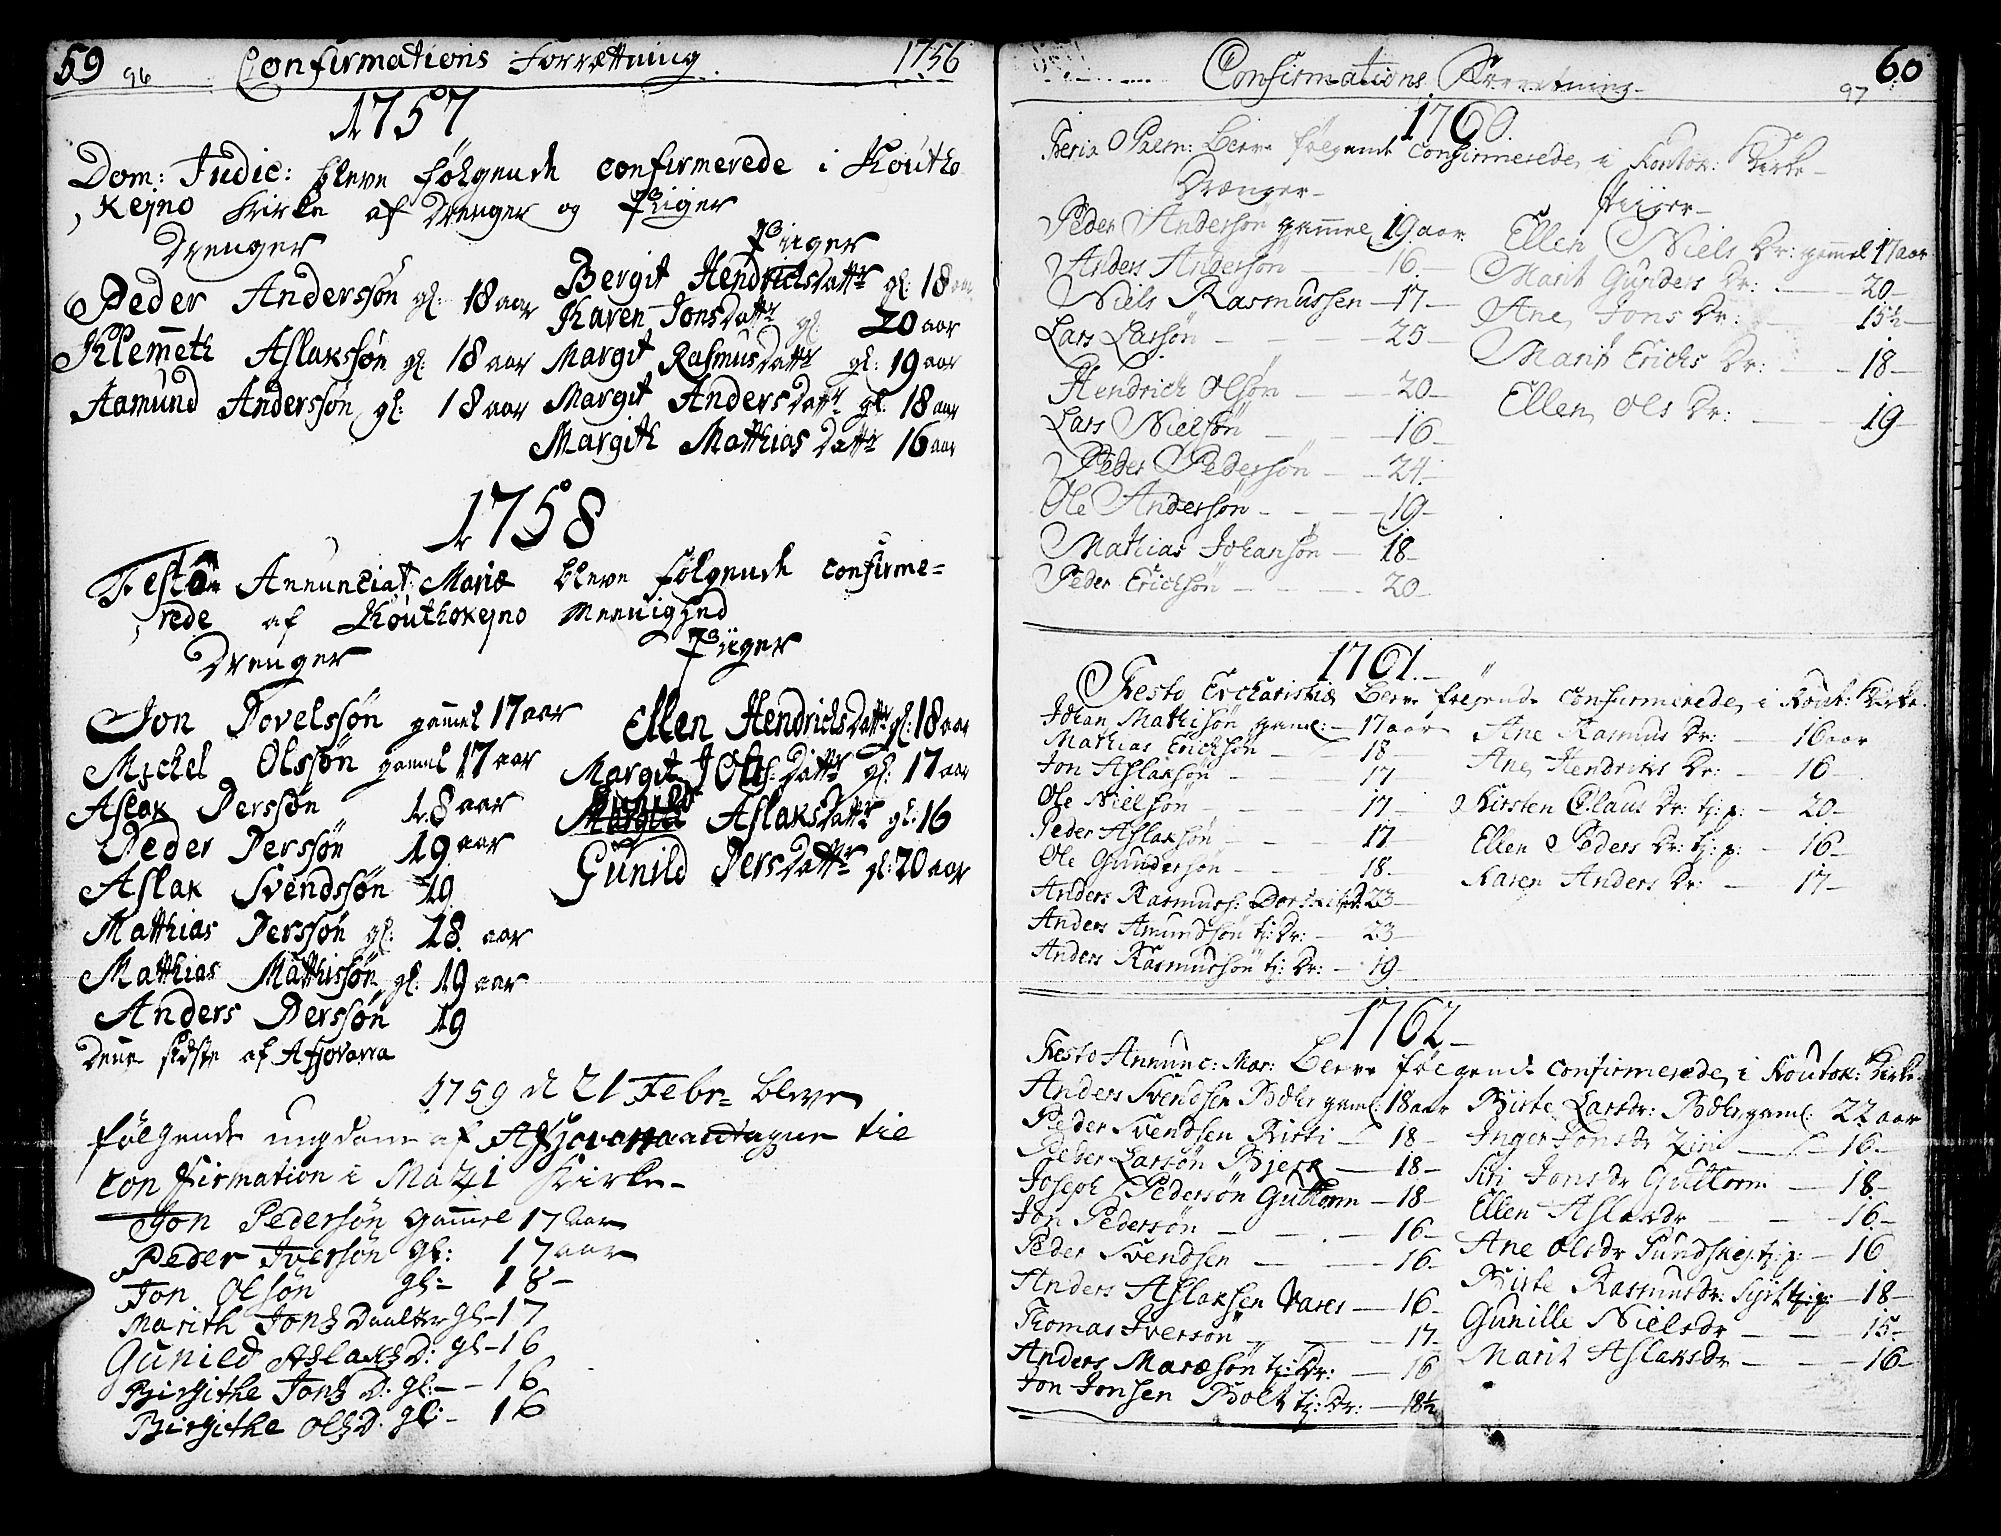 59 96 Confirmations Forrættning 1756
1757
Dom: Judic: bleve følgende confirmerede i Koutho
kejno Kirke af Drenger og Piger
Drenger
Peder Anderssøn gl: 18 aar
Klemmeth Aslakssøn gl: 18 aar
Aamund Anderssøn gl: 18 aar
Piiger
Bergit Hendrichsdattr gl: 18 aar
Karen Jonsdattr gl: 20 aar
Margit Rasmusdattr gl: 19 aar
Margit Andersdattr gl: 18 aar
Margith Matthiasdattr 16 aar
1758
Festo Annunciat: Mariæ bleve følgende confirme=
rede af Kouthokejno Meenighed
Drenger
Jon Povelssøn gammel 17 aar
Michel Olssøn gamel 17 aar
Aslak Perssøn 18 aar
Peder Perssøn 19 aar
Aslak Svendssøn 19
Matthias Perssøn gl: 18 aar
Matthias Matthissøn gl: 19 aar
Anders Perssøn 19
Denne sidste af Afjovarra
Piiger
Ellen Hendrichsdattr gl: 18 aar
Margit Olsdattr gl: 17 aar
Aslaksdattr gl: 16
Gunild Persdattr gl: 20 aar
1759 d 21 Febr= bleve
følgende ungdom af antagne til
confirmation i Mazi Kirke
Jon Pedersøn gammel 17 aar
Peder Iversøn gl: 17 aar
Jon Olsøn gl= 18
Marith Jons Daatter gl- 17
Gunild Aslaks D: gl- 16
Birgithe Jons D. gl:- 16
Birgithe Ols D. gl:- 16
Confirmations Forretning 97 60
1760
Feria Palm: Bleve følgende Confirmerede i Koutok: Kirke
Drænger
Peder Anderson gammel 19 aar
Anders Anderson 16
Niels Rasmussen 17
Lars Larsøn 25
Hendrich Olsøn 20
Lars Nielsøn 16
Peder Pedersøn 24
Ole Andersøn 19
Mathias Johansøn 18
Peder Erichsøn 20
Piiger
Ellen Niels Dr: gammel 17 aar
Marit Gunders Dr: 20
Ane Jons Dr: 15½
Marit Erichs Dr: 18
Ellen Ols Dr: 19
1761
Festo Eucharistiæ Bleve følgende confirmerede i Kout: Kirke
Johan Mathisøn gaml: 17 aar
Mathias Erichsøn 18
Jon Aslaksøn 17
Ole Nielsøn 17
Peder Aslaksøn 17
Ole Gundersøn 18
Anders Rasmuss: 23
Anders Amundsøn tj: Dr: 23
Anders Rasmussøn tj: Dr: 19
Ane Rasmus Dr: 16 aar
Ane Hendriks Dr: 16
Kirsten Claus Dr: tj: p: 20
Ellen Peders Dr: tj: p: 16
Karen Anders Dr: 17
1762
Festo Annunc: Mar: Bleve følgende confirmerede i Koutok: Kirke
Anders Svendsen gaml: 18 aar
Peder Svendsen Kitti 18
Peder Larsøn 18
Joseph Pedersøn Guttorm 18
Jon Pedersøn 16
Peder Svendsen 16
Anders Aslaksen Vares 16
Thomas Iversøn 17
Anders tj: Dr: 16
Jon Jonsen Bolt tj: Dr: 18½
Birte Larsdr: gaml: 22 aar
Inger Jonsdr 16
Siri Jonsdr Guttorm 18
Ellen Aslaksdr 16
Ane Olsdr tj: p: 16
Birte Rasmusdr: tj: p: 18
Gunille Nielsdr 15
Marit Aslaksdr 16